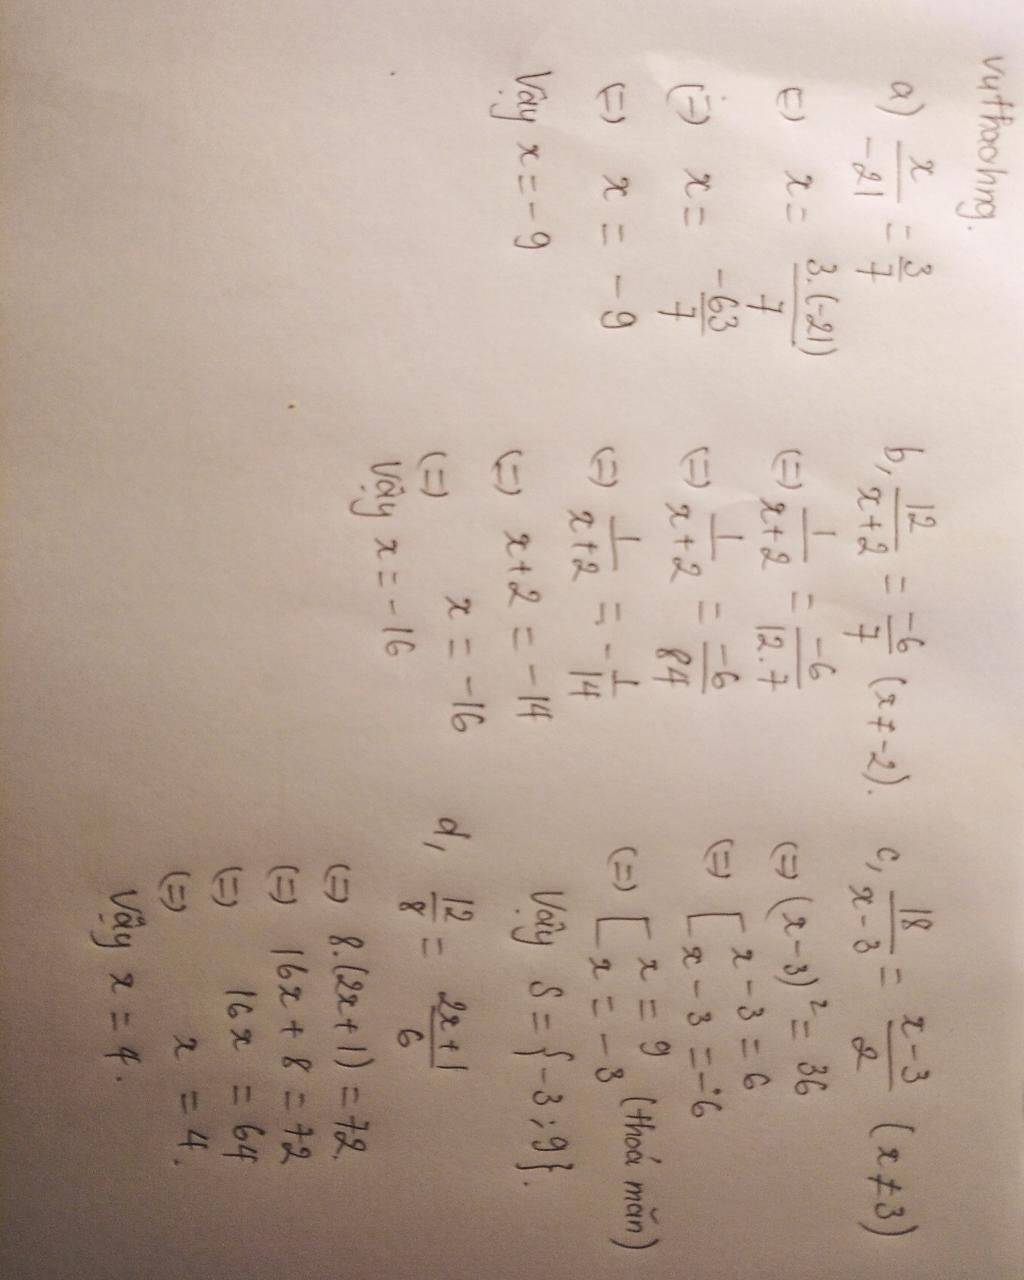 vuthaohng.
a) x/-21 = 3/7
(=) x = 3.(-21)/7
(=) x = -63/7
(=) x = -9
Vậy x = -9
b, 12/x+2 = -6/7 (x ≠ -2).
(=) 1/x+2 = -6/12.7
(=) 1/x+2 = -6/84
(=) 1/x+2 = -1/14
(=) x+2 = -14
(=) x = -16
Vậy x = -16
c, 18/x-3 = x-3/2 (x ≠ 3)
(=) (x-3)² = 36
(=) [ x-3 = 6
x-3 = -6
(=) [ x = 9
x = -3 (thoả mãn)
Vậy S = {-3; 9}.
d, 12/8 = 2x+1/6
(=) 8.(2x+1) = 72.
(=) 16x + 8 = 72
(=) 16x = 64
(=) x = 4.
Vậy x = 4.